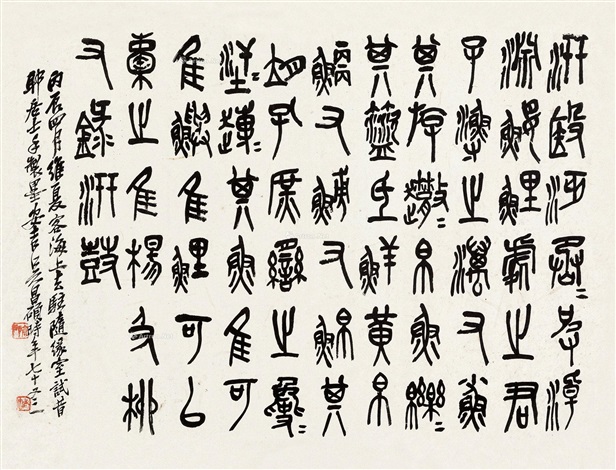 汧殹沔=丞皮淖
淵鰋鯉處之君
子漁之澫又鯊
其斿趣=帛魚皪=
其盜氐鮮黃帛
其鯾又鰟又鮊
其胡孔庶臠之
汗=趠=其魚隹可
隹鱮隹鯉可以
橐之隹楊及柳
又錄汧鼓
丙辰四月維夏客海上去駐隨緣室試昔
耶居士手製墨安吉吳昌碩時年七十又三